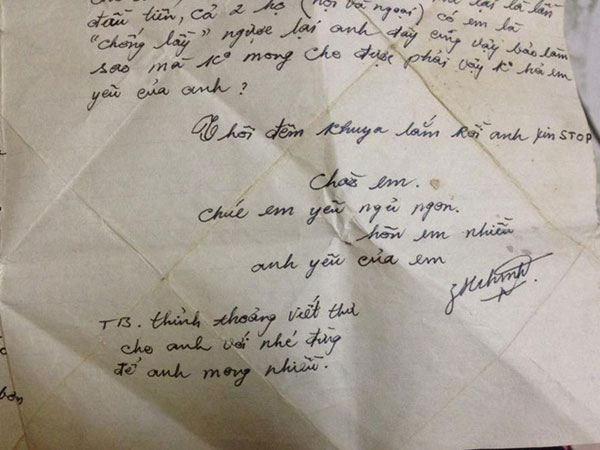 lại là lần
đầu tiên, cả 2 họ (nội và ngoại) có em là
"chồng lấy" ngược lại anh đây cũng vậy bảo làm
sao mà K° mong cho được phải vậy K° hả em
yêu của anh?
Thôi đêm khuya lắm rồi anh xin STOP
Chào em.
chúc em yêu ngủ ngon.
hôn em nhiều
anh yêu của em
TB. thỉnh thoảng viết thư
cho anh với nhé đừng
để anh mong nhiều.